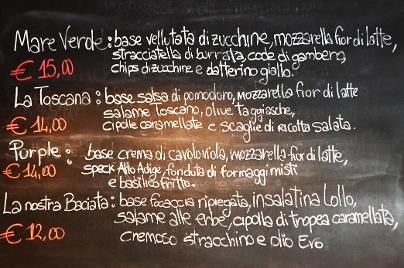 Mare Verde: base vellutata di zucchine, mozzarella fior di latte,
stracciatella di burrata, code di gambero,
€ 15,00 chips di zucchine e datterino giallo.
La Toscana: base salsa di pomodoro, mozzarella fior di latte
salame toscano, olive taggiasche,
€ 14,00 cipolle caramellate e scaglie di ricotta salata.
Purple: base crema di cavolo viola, mozzarella fior di latte,
€ 14,00 speck Alto Adige, fonduta di formaggi misti
e basilico fritto.
La nostra Baciata: base focaccia ripiegata, insalatina Lollo,
salame alle erbe, cipolla di tropea caramellata,
€ 12,00 cremoso stracchino e olio Evo